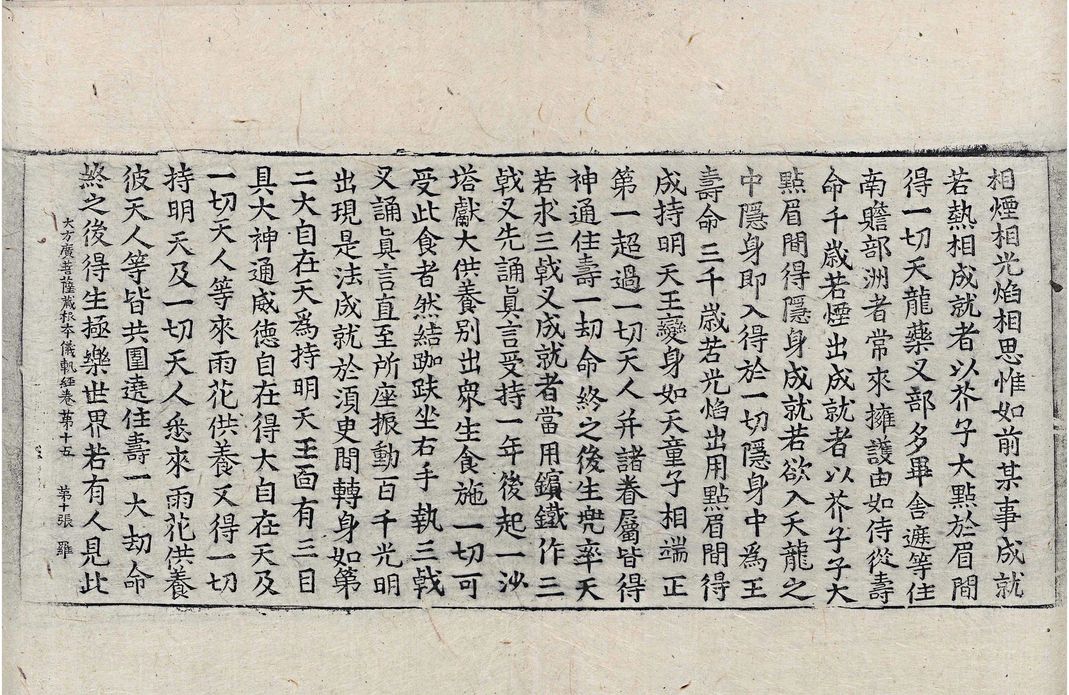 相煙相光焰相思惟如前某事成就
若熱相成就者以芥子大點於眉間
得一切天龍藥叉部多畢舍遮等住
南贍部洲者常來擁護由如侍從壽
命千歲若煙出成就者以芥子子大
點眉間得隱身成就若欲入天龍之
中隱身即入得於一切隱身中為王
壽命三千歲若光焰出用點眉間得
成持明天王變身如天童子相端正
第一超過一切天人并諸眷屬皆得
神通住壽一劫命終之後生兜率天
若求三戟叉成就者當用鑌鐵作三
戟叉先誦真言受持一年後起一沙
塔獻大供養別出眾生食施一切可
受此食者然結跏趺坐右手執三戟
叉誦真言直至所座振動百千光明
出現是法成就於須臾間轉身如第
二大自在天為持明天王面有三目
具大神通威德自在得大自在天及
一切天人等來雨花供養又得一切
持明天及一切天人悉來雨花供養
彼天人等皆共圍遶住壽一大劫命
大方廣菩薩藏根本儀軌經卷第十五 第十張 羅
終之後得生極樂世界若有人見此